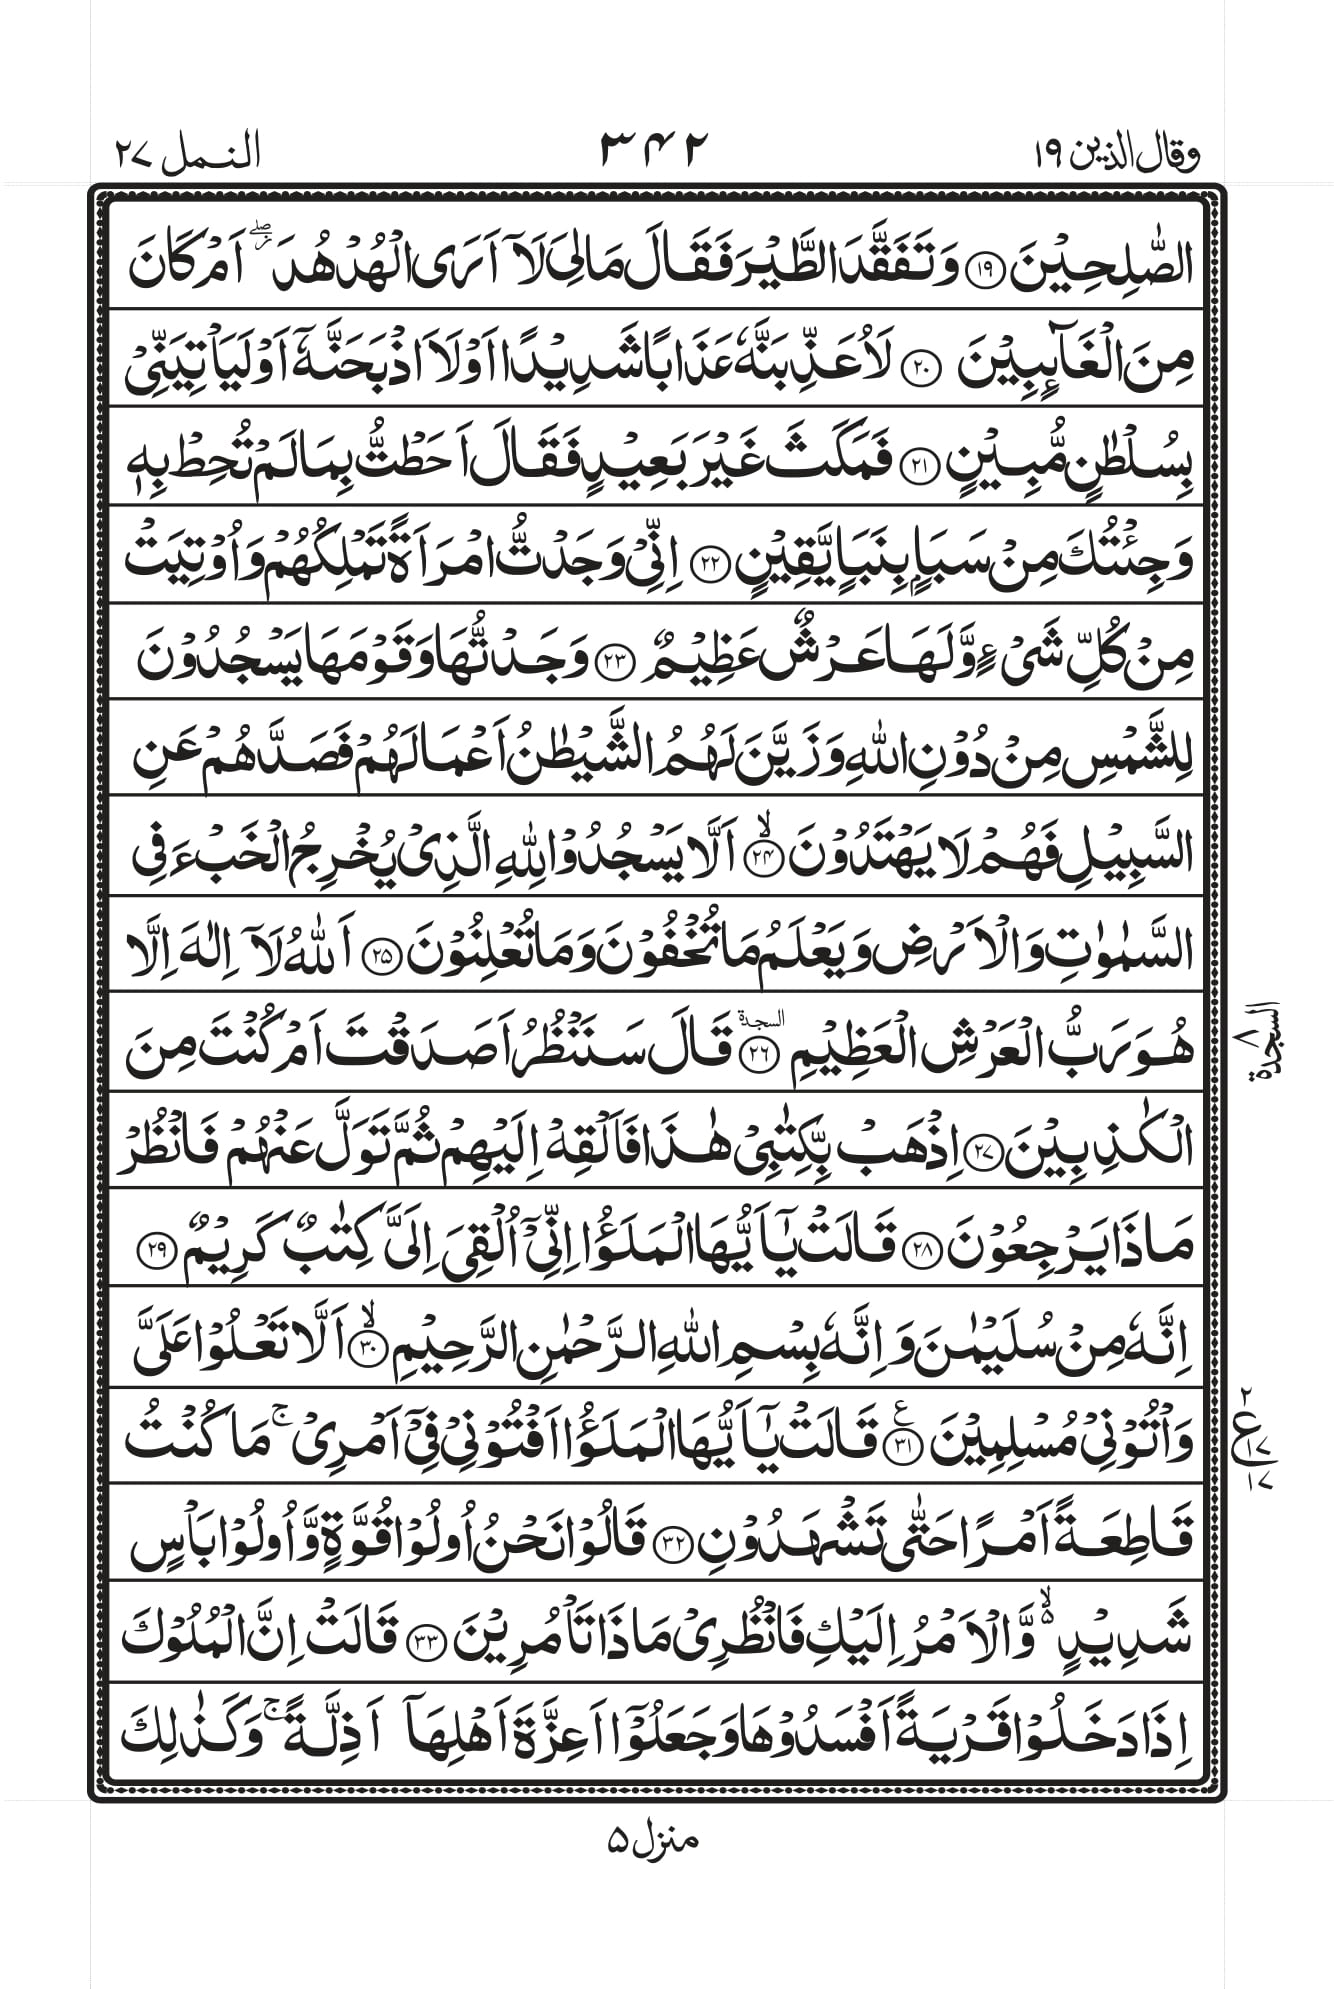 وقال الذین ۱۹ ۳۴۲ النمل ۲۷
الصّٰلِحِیْنَ ﴿۱۹﴾ وَتَفَقَّدَ الطَّیْرَ فَقَالَ مَالِیَ لَاۤ اَرَی الْهُدْهُدَ ۖ٘ اَمْ كَانَ
مِنَ الْغَآىِٕبِیْنَ ﴿۲۰﴾ لَاُعَذِّبَنَّهٗ عَذَابًا شَدِیْدًا اَوْ لَاَاذْبَحَنَّهٗۤ اَوْ لَیَاْتِیَنِّیْ
بِسُلْطٰنٍ مُّبِیْنٍ ﴿۲۱﴾ فَمَكَثَ غَیْرَ بَعِیْدٍ فَقَالَ اَحَطْتُّ بِمَا لَمْ تُحِطْ بِهٖ
وَجِئْتُكَ مِنْ سَبَاٍۭ بِنَبَاٍ یَّقِیْنٍ ﴿۲۲﴾ اِنِّیْ وَجَدْتُّ امْرَاَةً تَمْلِكُهُمْ وَاُوْتِیَتْ
مِنْ كُلِّ شَیْءٍ وَّلَهَا عَرْشٌ عَظِیْمٌ ﴿۲۳﴾ وَجَدْتُّهَا وَقَوْمَهَا یَسْجُدُوْنَ
لِلشَّمْسِ مِنْ دُوْنِ اللّٰهِ وَزَیَّنَ لَهُمُ الشَّیْطٰنُ اَعْمَالَهُمْ فَصَدَّهُمْ عَنِ
السَّبِیْلِ فَهُمْ لَا یَهْتَدُوْنَ ﴿۲۴﴾ۙ اَلَّا یَسْجُدُوْا لِلّٰهِ الَّذِیْ یُخْرِجُ الْخَبْءَ فِی
السَّمٰوٰتِ وَالْاَرْضِ وَیَعْلَمُ مَا تُخْفُوْنَ وَمَا تُعْلِنُوْنَ ﴿۲۵﴾ اَللّٰهُ لَاۤ اِلٰهَ اِلَّا
هُوَ رَبُّ الْعَرْشِ الْعَظِیْمِ ﴿۲۶﴾ السجدة قَالَ سَنَنْظُرُ اَصَدَقْتَ اَمْ كُنْتَ مِنَ
السجدة ۸
الْكٰذِبِیْنَ ﴿۲۷﴾ اِذْهَبْ بِّكِتٰبِیْ هٰذَا فَاَلْقِهْ اِلَیْهِمْ ثُمَّ تَوَلَّ عَنْهُمْ فَانْظُرْ
مَاذَا یَرْجِعُوْنَ ﴿۲۸﴾ قَالَتْ یٰۤاَیُّهَا الْمَلَؤُا اِنِّیْۤ اُلْقِیَ اِلَیَّ كِتٰبٌ كَرِیْمٌ ﴿۲۹﴾
اِنَّهٗ مِنْ سُلَیْمٰنَ وَاِنَّهٗ بِسْمِ اللّٰهِ الرَّحْمٰنِ الرَّحِیْمِ ﴿۳۰﴾ۙ اَلَّا تَعْلُوْا عَلَیَّ
وَاْتُوْنِیْ مُسْلِمِیْنَ ﴿۳۱﴾ ع قَالَتْ یٰۤاَیُّهَا الْمَلَؤُا اَفْتُوْنِیْ فِیْۤ اَمْرِیْ ۚ مَا كُنْتُ
۲ ع ۱۷ ۱۷
قَاطِعَةً اَمْرًا حَتّٰی تَشْهَدُوْنِ ﴿۳۲﴾ قَالُوْا نَحْنُ اُولُوْا قُوَّةٍ وَّاُولُوْا بَاْسٍ
شَدِیْدٍ ۙ۬ وَّالْاَمْرُ اِلَیْكِ فَانْظُرِیْ مَاذَا تَاْمُرِیْنَ ﴿۳۳﴾ قَالَتْ اِنَّ الْمُلُوْكَ
اِذَا دَخَلُوْا قَرْیَةً اَفْسَدُوْهَا وَجَعَلُوْۤا اَعِزَّةَ اَهْلِهَاۤ اَذِلَّةً ۚ وَكَذٰلِكَ
منزل ۵